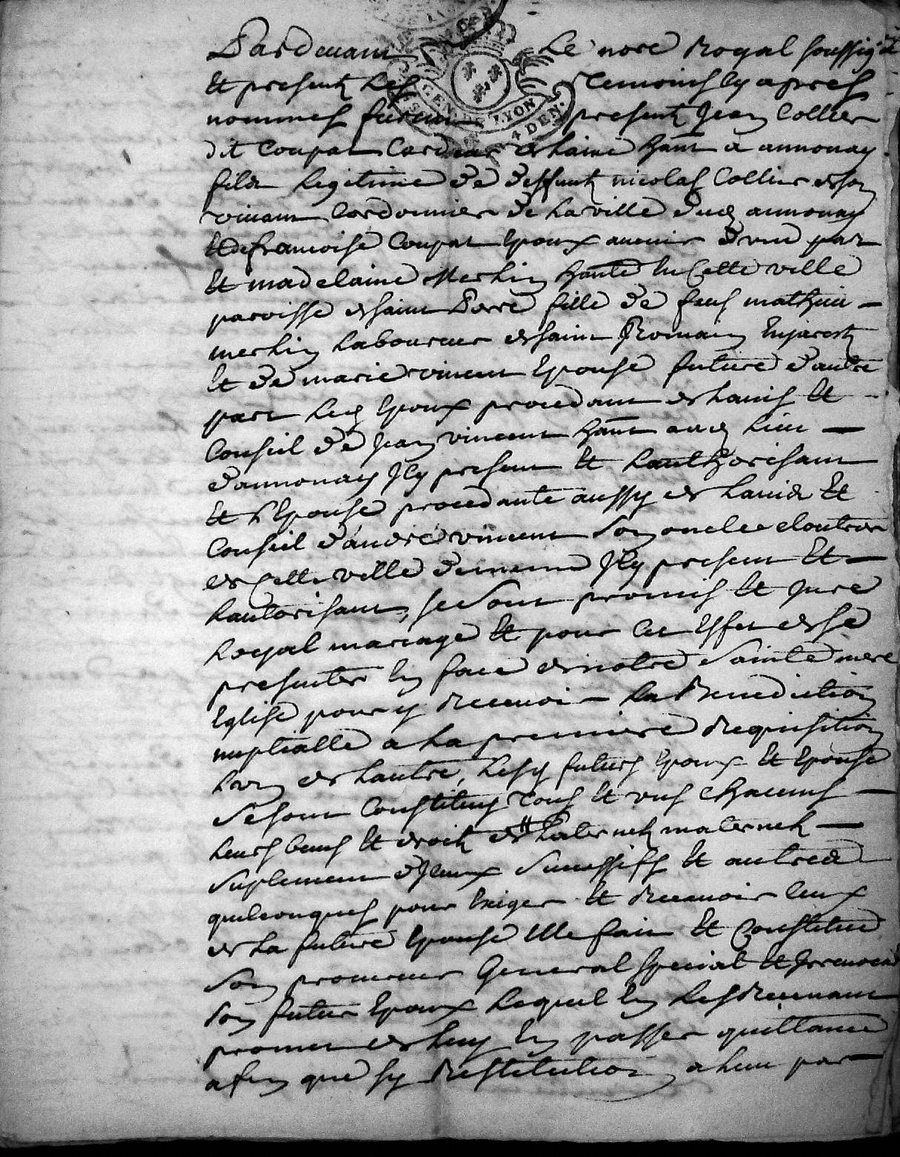 Pardevant Le nore Royal soussigé
Et present Les temoins cy apres
nommes furent present Jean Collier
GEN. DE LYON
4 DEN.
dit Coupat Cardeur de laine hant a annonay
fils Legitime de deffunt nicolas Collier de son
vivant Cordonnier de La ville dud annonay
Et de francoise Coupat Epoux avenir d'une part
Et madelaine Merlin hante En Cette ville
paroisse de saint Pierre fille de feus mathieu
merlin Laboureur de saint Romain
Et de marie vincent Epouse future d'autre
part Led Epoux procedant de Lavis Et
Conseil de Jean vincent hant aud Lieu
d'annonay Icy present Et Lauthorisant
Et L'Epouse procedante aussy de Lavis Et
Conseil d'andré vincent son oncle cloutier
de Cette ville de meme Icy present Et
Lautorisant, se sont promis Et Juré
Loyal mariage Et pour Cet Effet de se
presenter En face de notre sainte mere
Eglise pour y Recevoir La Benediction
nuptialle a La premiere Requisition
Lun de Lautre, Lesd futurs Epoux Et Epouse
se sont Constitués tous Et uns chacuns
Leurs biens Et droits Paternels maternels
suplement d'Iceux successifs Et autres
quelconques pour Exiger Et Recevoir Ceux
de La future Epouse Elle fait Et Constitue
son procureur General special Et Irrevocable
son futur Epoux Lequel En Les Recevant
promet de Luy En passer quittance
afin que sy Restitution a Lieu par